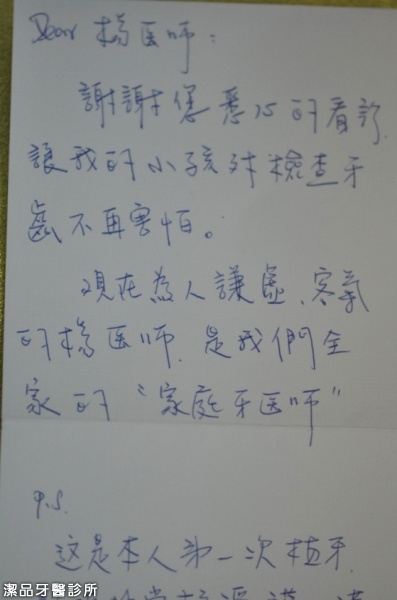 Dear 楊医师:
謝謝您悉心的看診,
讓我的小孩对檢查牙
齒不再害怕。
現在為人謙虛、客氣
的楊医师, 是我們全
家的“家庭牙医师”
P.S.
这是本人第一次植牙,
潔品牙醫診所